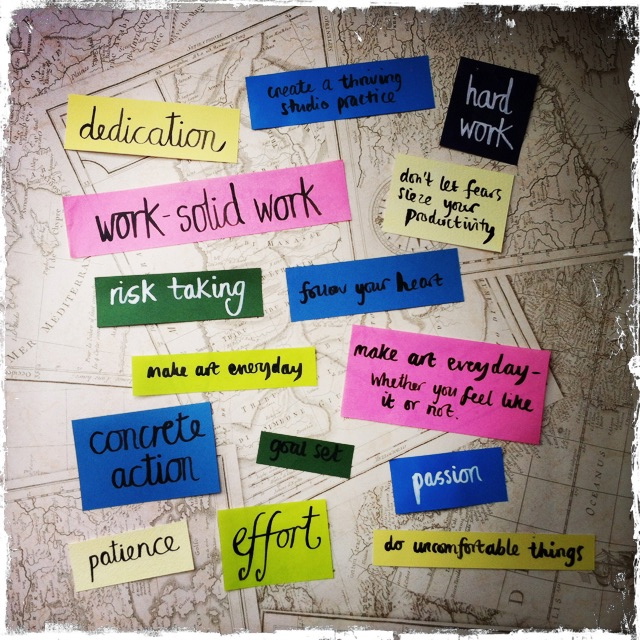 create a thriving
studio practice
dedication
hard
work
work-solid work
don't let fears
sieze your
productivity
risk taking
follow your heart
make art everyday
make art eveyday-
Whether you feel like
it or not.
concrete
action
goal set
passion
patience
effort
do uncomfortable things